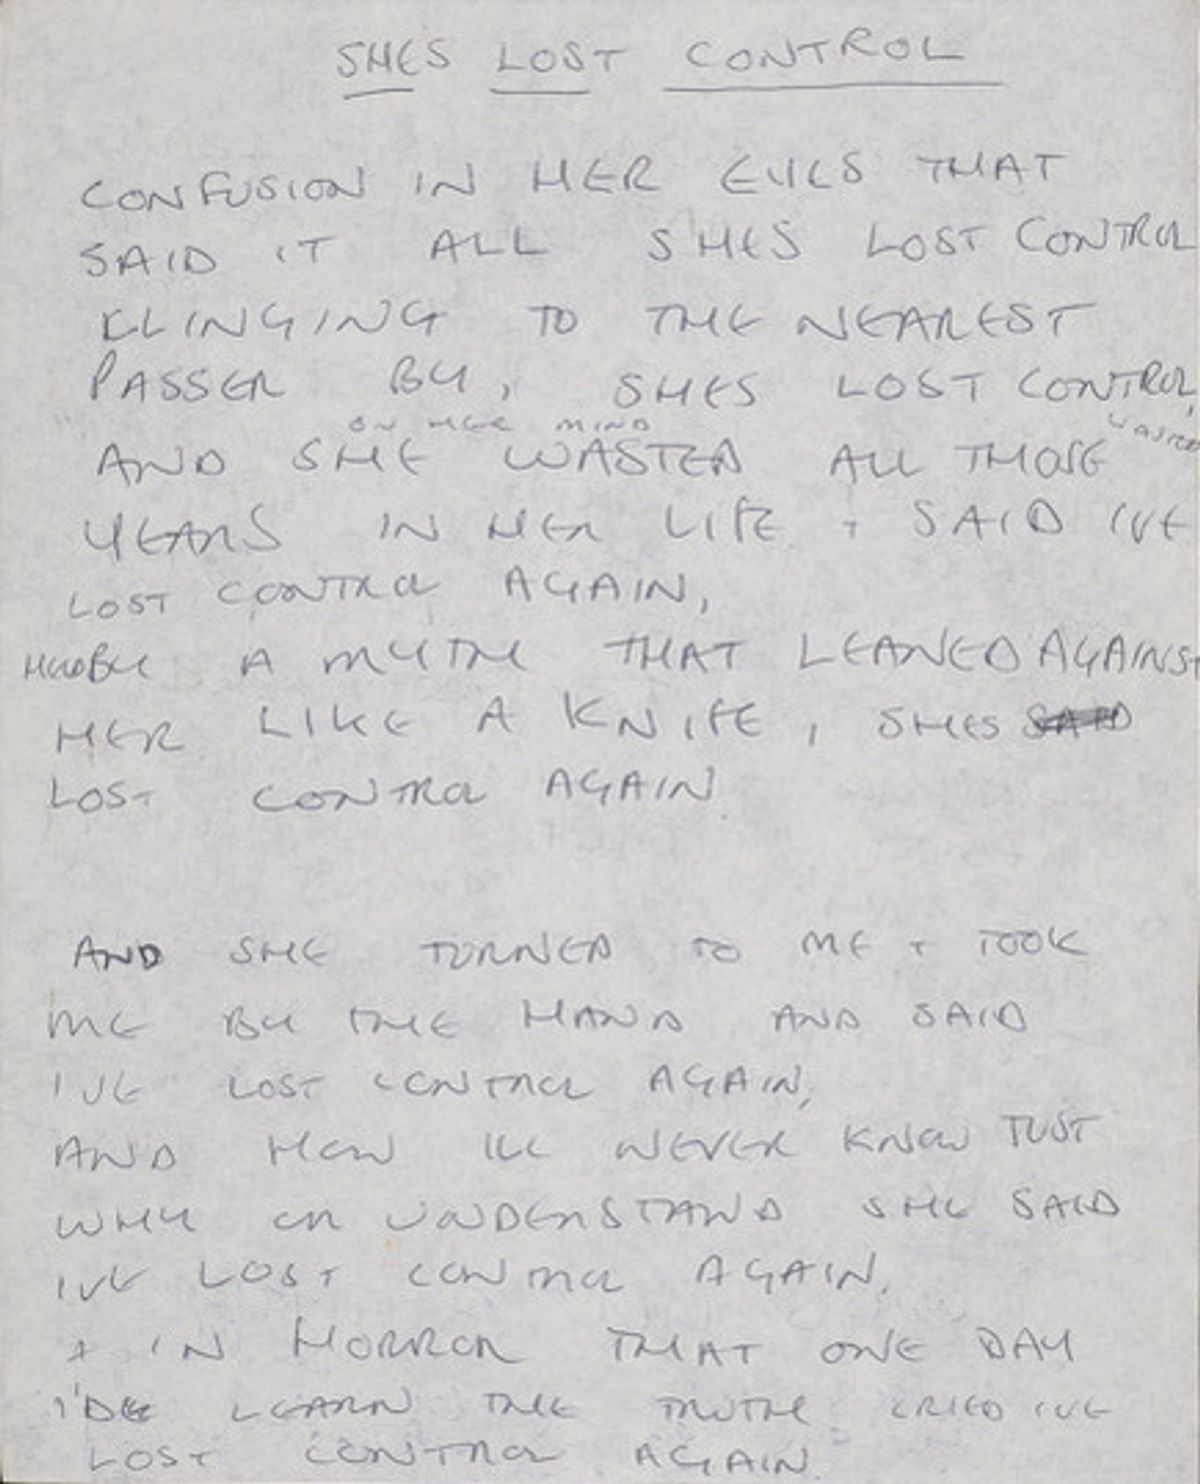 SHES LOST CONTROL
CONFUSION IN HER EYES THAT
SAID IT ALL SHES LOST CONTROL
KLINGING TO THE NEAREST
PASSER BY, SHES LOST CONTROL,
ON HER MIND WASTED
AND SHE WASTED ALL THOSE
YEARS IN HER LIFE + SAID IVE
LOST CONTROL AGAIN,
A MYTH THAT LEANED AGAINST
HER LIKE A KNIFE, SHES SAID
LOST CONTROL AGAIN
AND SHE TURNED TO ME + TOOK
ME BY THE HAND AND SAID
IVE LOST CONTROL AGAIN,
AND HOW ILL NEVER KNOW JUST
WHY OR UNDERSTAND SHE SAID
IVE LOST CONTROL AGAIN.
+ IN HORROR THAT ONE DAY
I'DE LEARN THE TRUTH CRIED IVE
LOST CONTROL AGAIN.